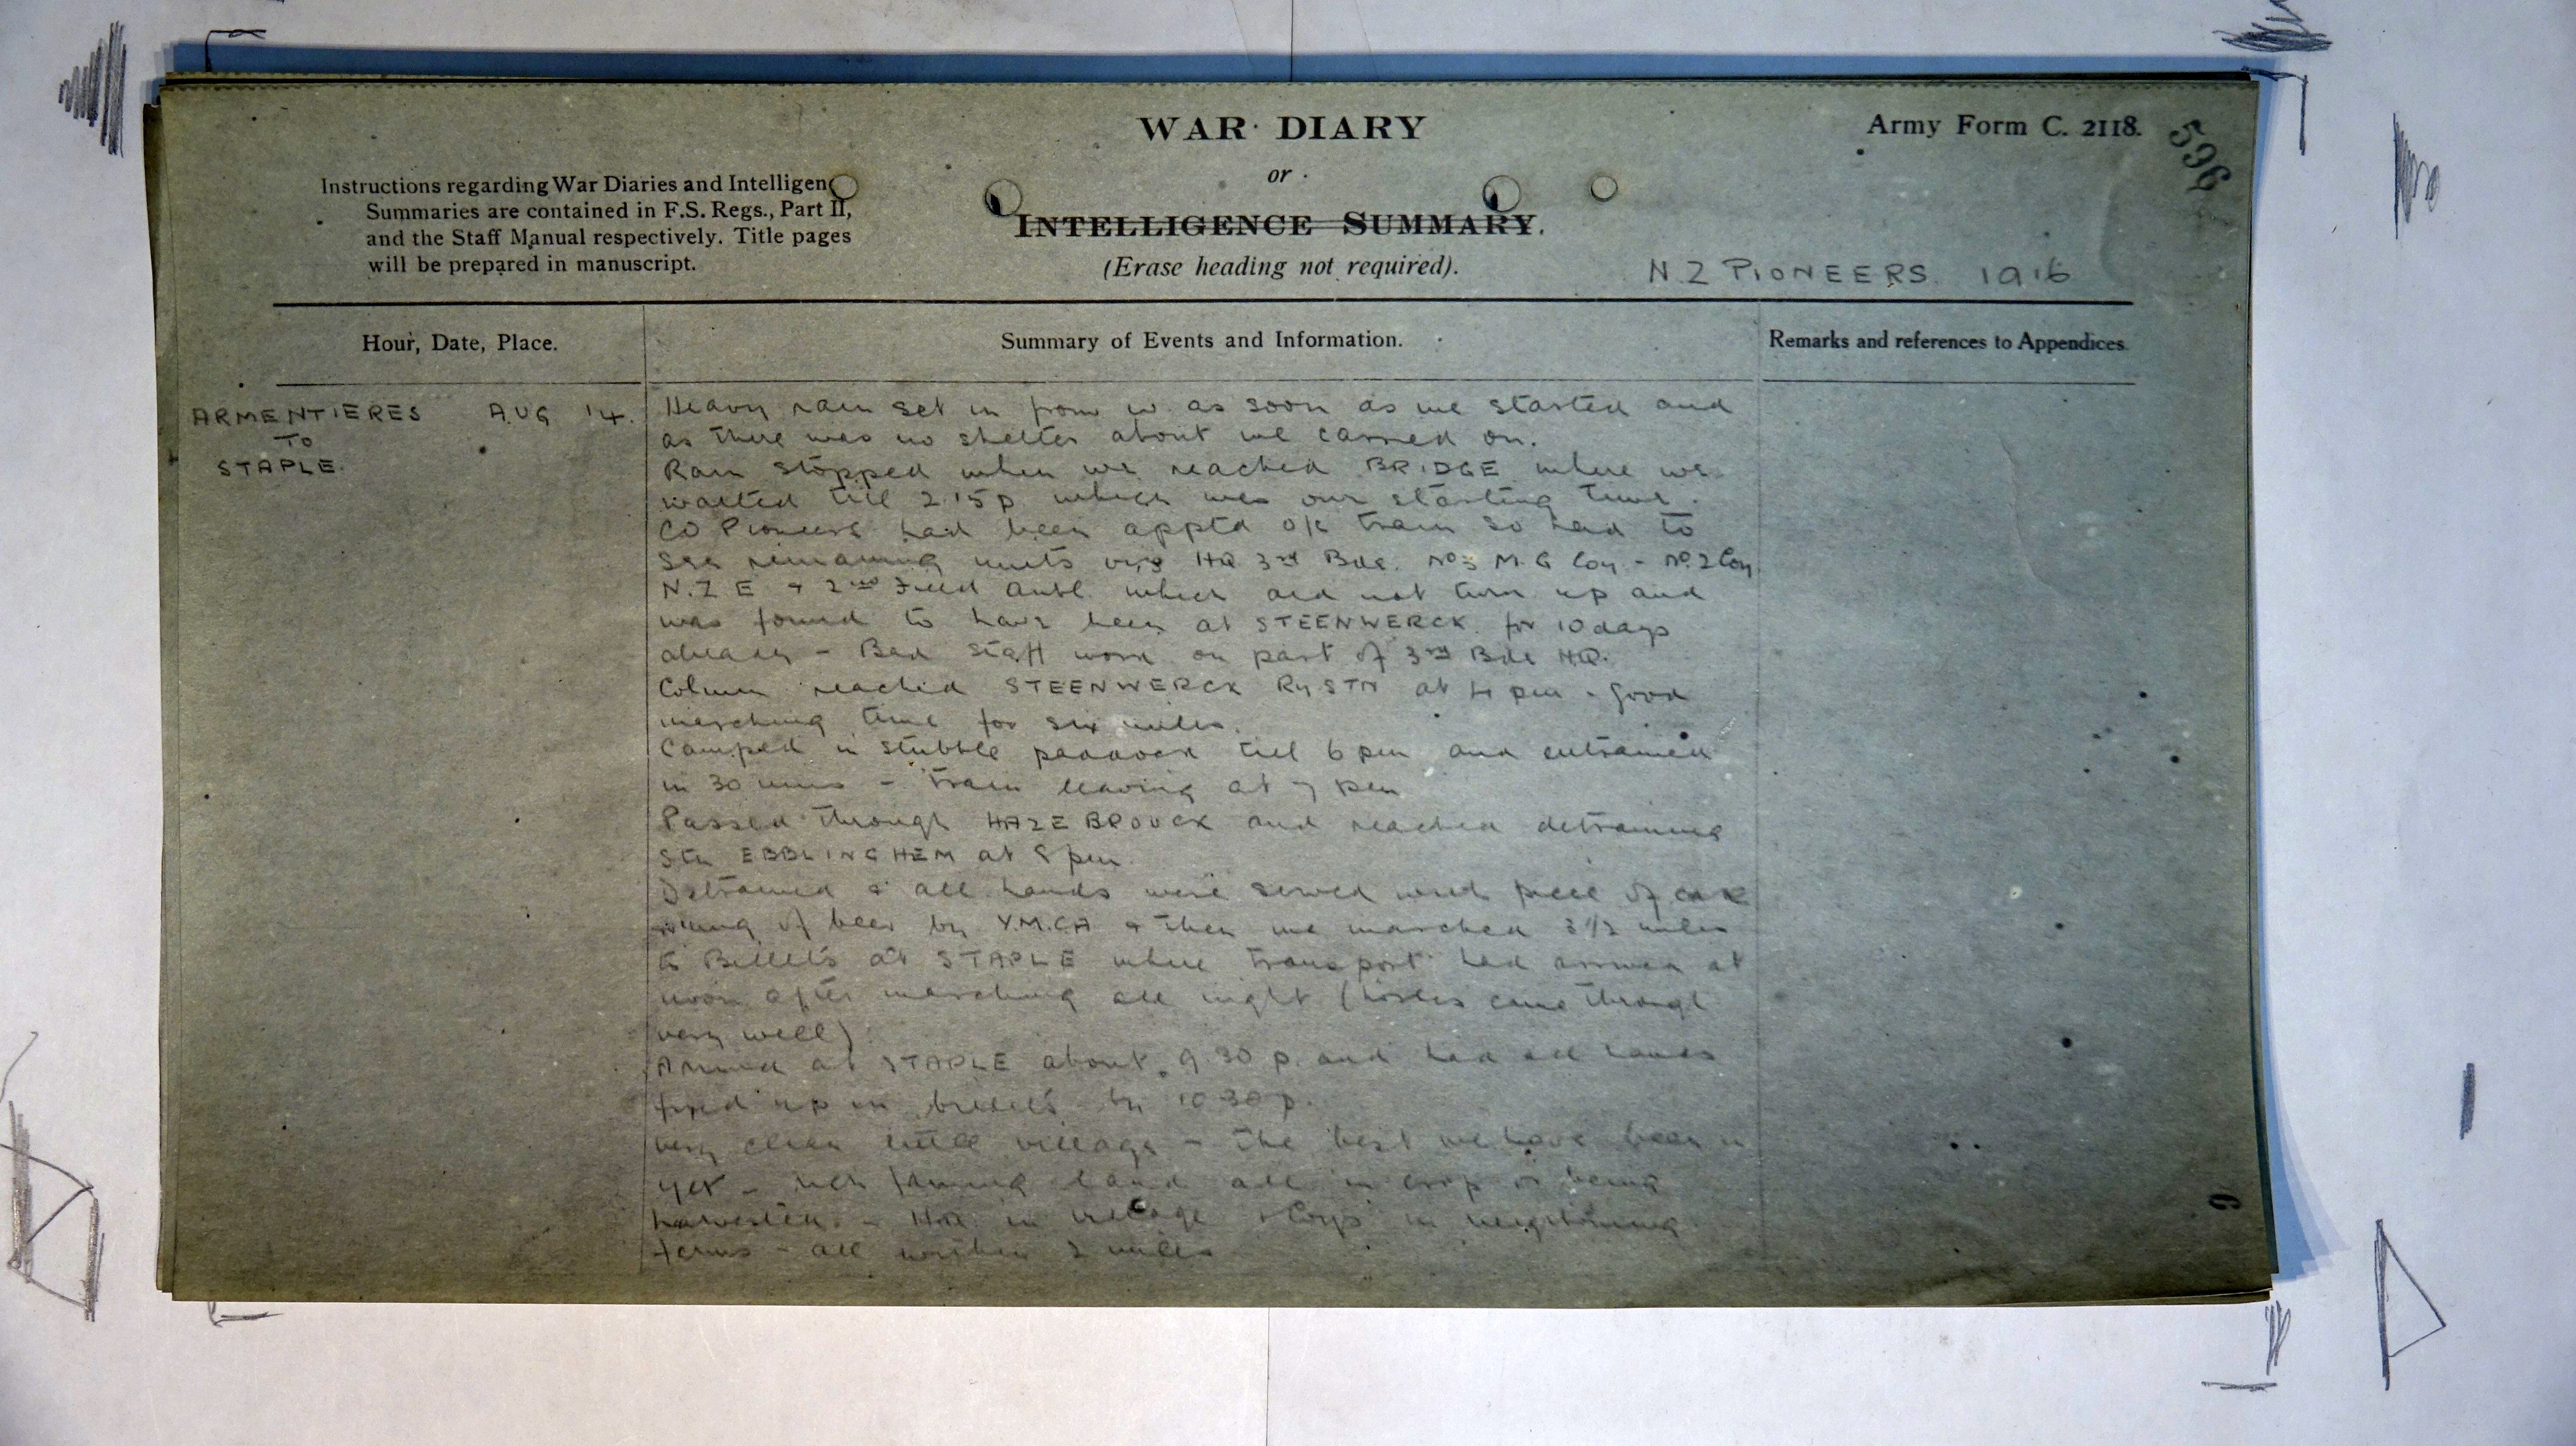 WAR DIARY
or
INTELLIGENCE SUMMARY.
(Erase heading not required).
Army Form C. 2118.
596
Instructions regarding War Diaries and Intelligence
Summaries are contained in F.S. Regs., Part II,
and the Staff Manual respectively. Title pages
will be prepared in manuscript.
N Z PIONEERS. 1916
Hour, Date, Place.
Summary of Events and Information.
Remarks and references to Appendices.
ARMENTIERES AUG 14.
TO
STAPLE.
Heavy rain set in from W. as soon as we started and
as there was no shelter about we carried on.
Rain stopped when we reached BRIDGE where we
waited till 2.15p which was our starting time.
CO Pioneers had been apptd o/c train so had to
see remaining units viz HQ 3rd Bde. No 3 M.G Coy - No. 2 Coy
N.Z E + 2nd Field Ambl. which did not turn up and
was found to have been at STEENWERCK for 10 days
already - Bad staff work on part of 3rd Bde HQ.
Column reached STEENWERCK Ry STN at 4 pm - good
marching time for six miles.
Camped in stubble paddock till 6 pm and entrained
in 30 mins - train leaving at 7 pm
Passed through HAZEBROUCK and reached detraining
Stn EBBLINGHEM at 8 pm.
Detrained & all hands were served with piece of cake
mug of beer by Y.M.C.A + then we marched 3 1/2 miles
to Billets at STAPLE where transport had arrived at
noon after marching all night (horses came through
very well)
Arrived at STAPLE about 9.30 p. and had all hands
fixed up in billets by 10 30 p.
very clean little village - the best we have been in
yet - rich farming land all in crop or being
harvested. - HQ. in village + Coys in neighbouring
farms - all within 2 miles